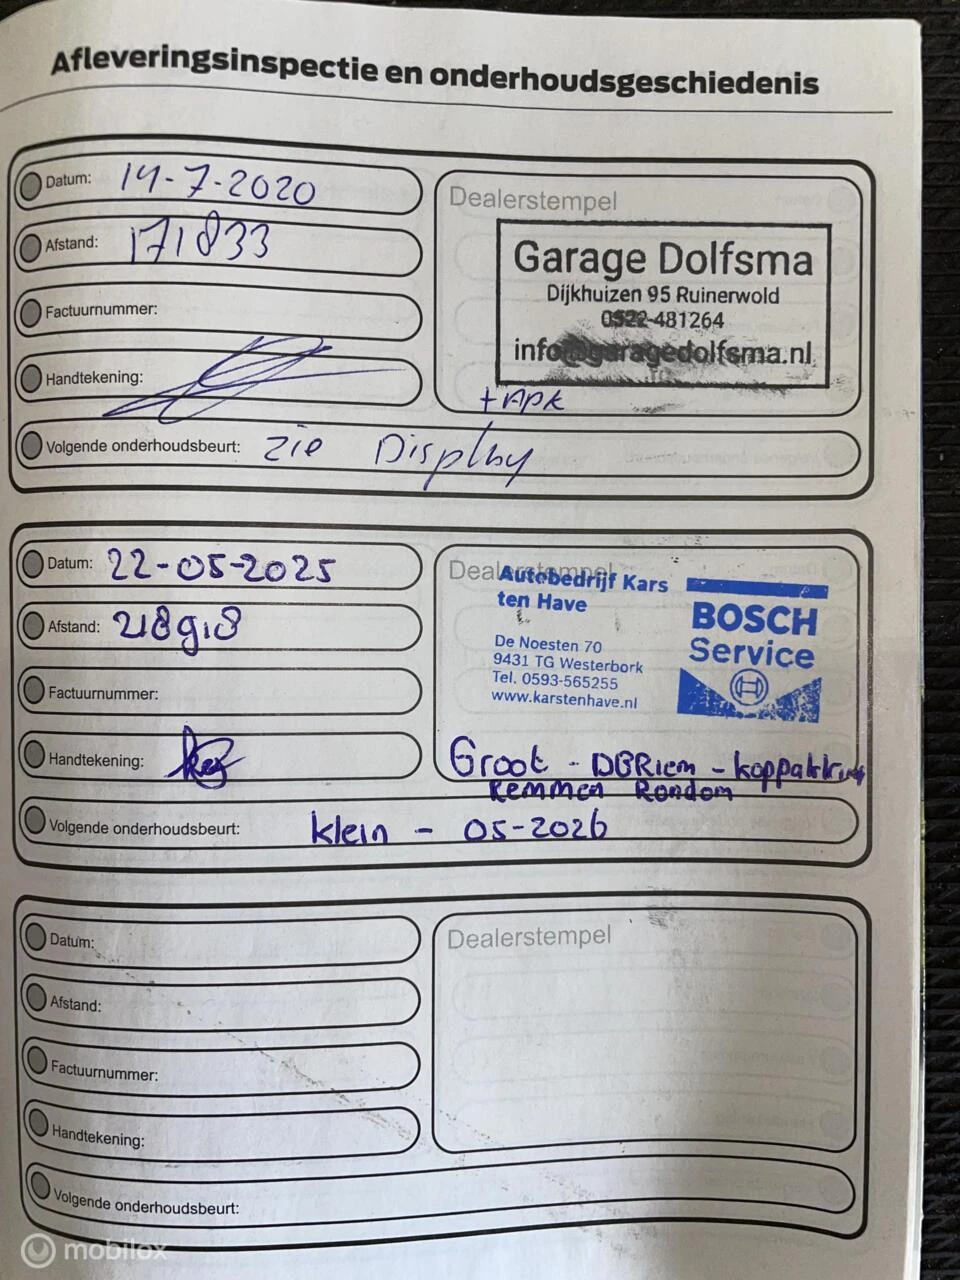 Afleveringsinspectie en onderhoudsgeschiedenis
Datum: 14-7-2020
Afstand: 171833
Factuurnummer:
Handtekening:
Dealerstempel
Garage Dolfsma
Dijkhuizen 95 Ruinerwold
0522-481264
info@garagedolfsma.nl
+APK
Volgende onderhoudsbeurt: zie Display
Datum: 22-05-2025
Afstand: 218918
Factuurnummer:
Handtekening:
Dealerstempel
Autobedrijf Kars
ten Have
De Noesten 70
9431 TG Westerbork
Tel. 0593-565255
www.karstenhave.nl
BOSCH
Service
Groot - DBRiem - koppakking
Remmen Rondom
Volgende onderhoudsbeurt: klein - 05-2026
Datum:
Afstand:
Factuurnummer:
Handtekening:
Dealerstempel
Volgende onderhoudsbeurt:
mobilox